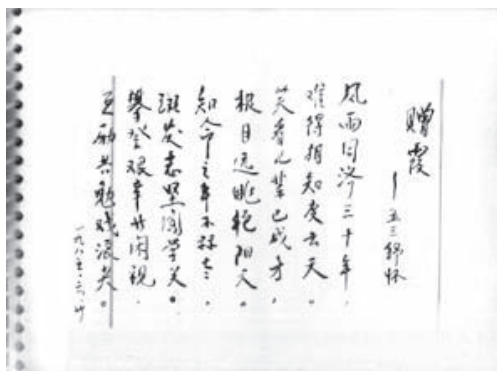 赠霞
—五三舒怀
风雨同济三十年，
难得相知度云天。
笑看儿辈已成才，
极目远眺艳阳天。
知命之年不称老，
斑发志坚闯学关。
攀登艰辛若闲视，
互励共勉战滚关。
一九八五·六·